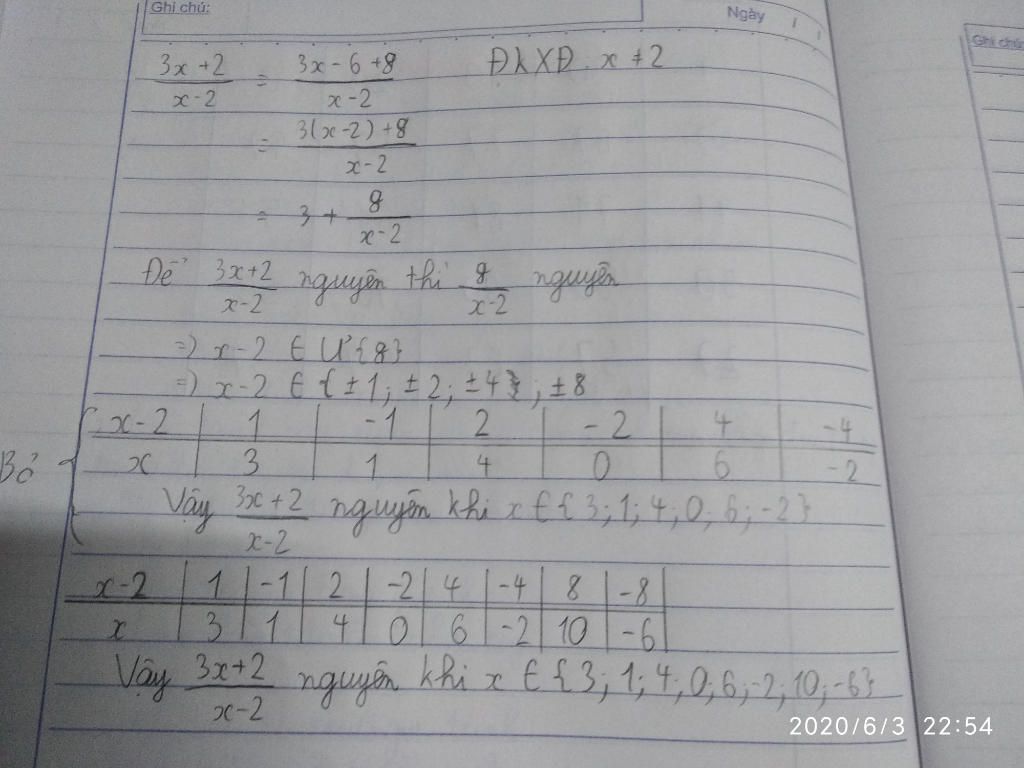 Ghi chú:
Ngày / /
Ghi chú:
3x+2/x-2 = 3x-6+8/x-2 ĐKXĐ: x ≠ 2
= 3(x-2)+8/x-2
= 3 + 8/x-2
Để 3x+2/x-2 nguyên thì 8/x-2 nguyên
=) x-2 ∈ Ư{8}
=) x-2 ∈ {±1; ±2; ±4}; ±8
x-2 | 1 | -1 | 2 | -2 | 4 | -4
Bỏ { x | 3 | 1 | 4 | 0 | 6 | -2
Vậy 3x+2/x-2 nguyên khi x ∈ {3;1;4;0;6;-2}
x-2 | 1 | -1 | 2 | -2 | 4 | -4 | 8 | -8
x | 3 | 1 | 4 | 0 | 6 | -2 | 10 | -6
Vậy 3x+2/x-2 nguyên khi x ∈ {3;1;4;0;6;-2;10;-6}
2020/6/3 22:54